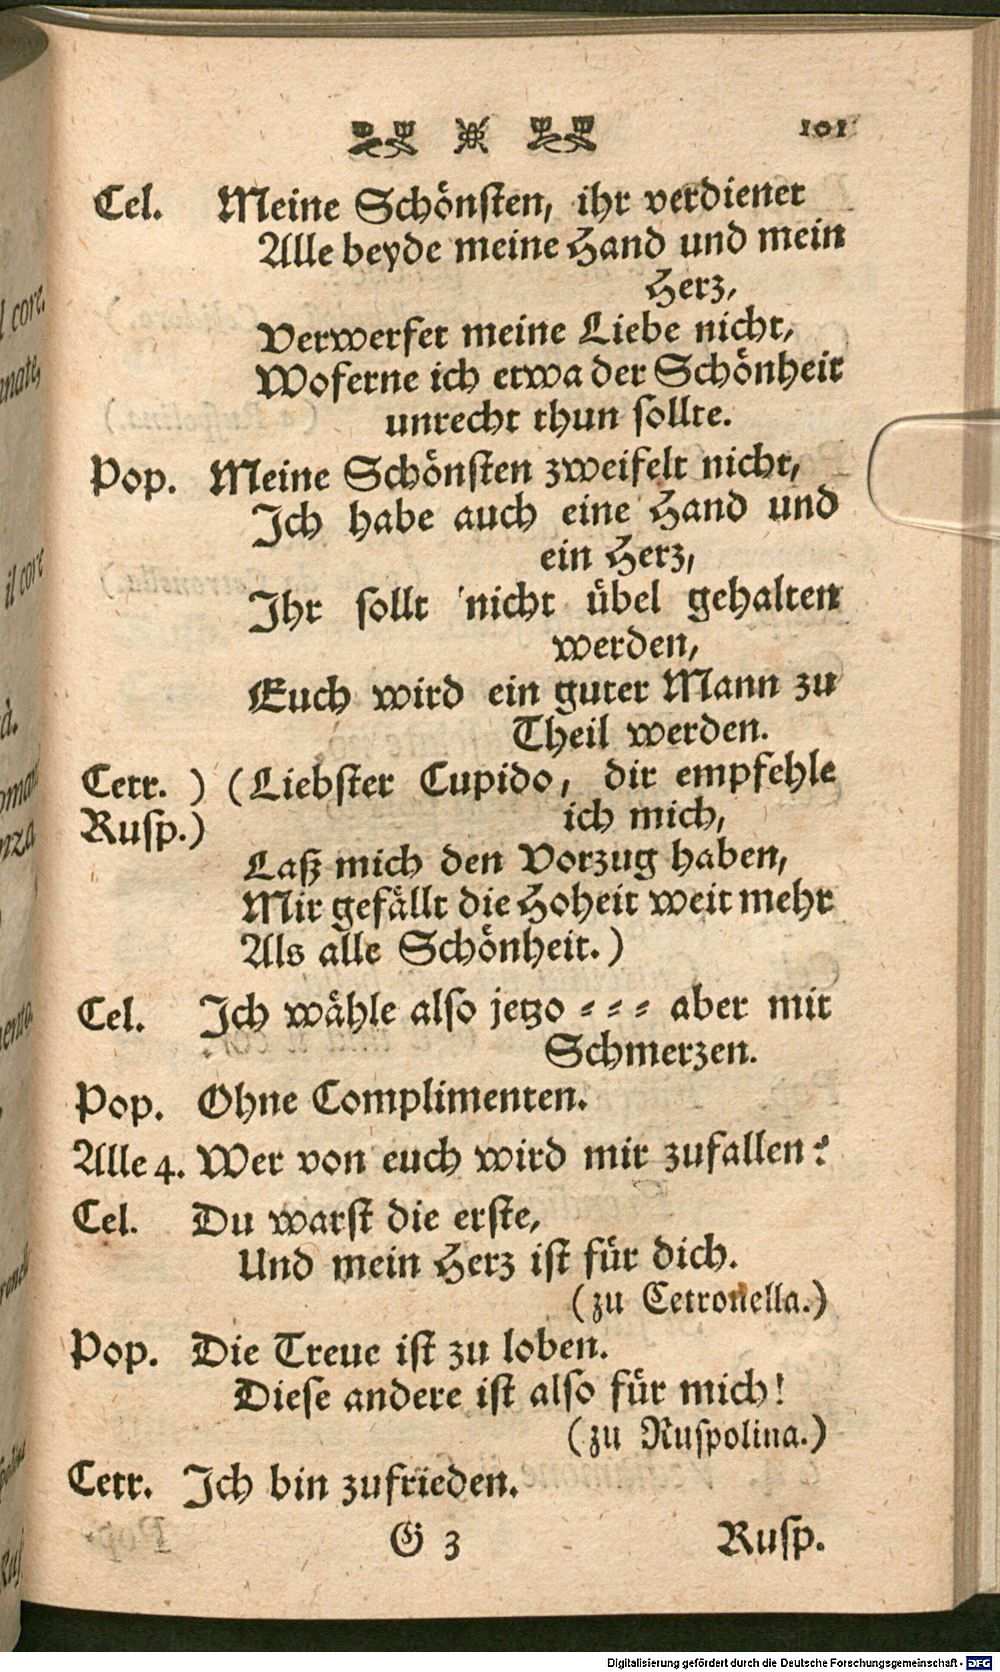 101
Cel. Meine Schönsten, ihr verdienet
Alle beyde meine Hand und mein
Herz,
Verwerfet meine Liebe nicht,
Woferne ich etwa der Schönheit
unrecht thun sollte.
Pop. Meine Schönsten zweifelt nicht,
Ich habe auch eine Hand und
ein Herz,
Ihr sollt nicht übel gehalten
werden,
Euch wird ein guter Mann zu
Theil werden.
Cetr. ) (Liebster Cupido, dir empfehle
ich mich,
Rusp.)
Laß mich den Vorzug haben,
Mir gefällt die Hoheit weit mehr
Als alle Schönheit.)
Cel. Ich wähle also jetzo - - - aber mit
Schmerzen.
Pop. Ohne Complimenten.
Alle 4. Wer von euch wird mir zufallen?
Cel. Du warst die erste,
Und mein Herz ist für dich.
(zu Cetronella.)
Pop. Die Treue ist zu loben.
Diese andere ist also für mich!
(zu Ruspolina.)
Cetr. Ich bin zufrieden.
G 3 Rusp.
Digitalisierung gefördert durch die Deutsche Forschungsgemeinschaft - DFG